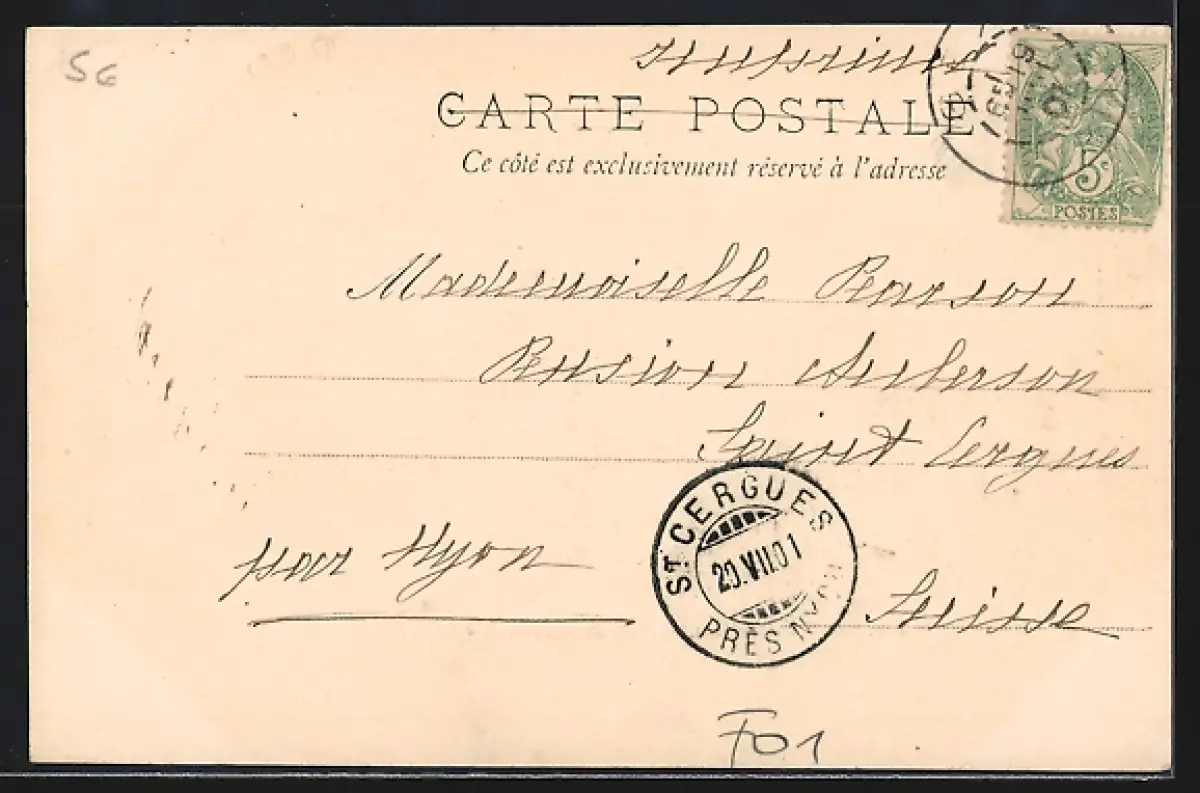 SG
Imprimé
CARTE POSTALE
Ce côté est exclusivement réservé à l'adresse
5c
POSTES
Mademoiselle Pearson
Pension Auberson
Saint Cergues
ST CERGUES
20.VII.01
PRÈS NYON
par Nyon
Suisse
F01